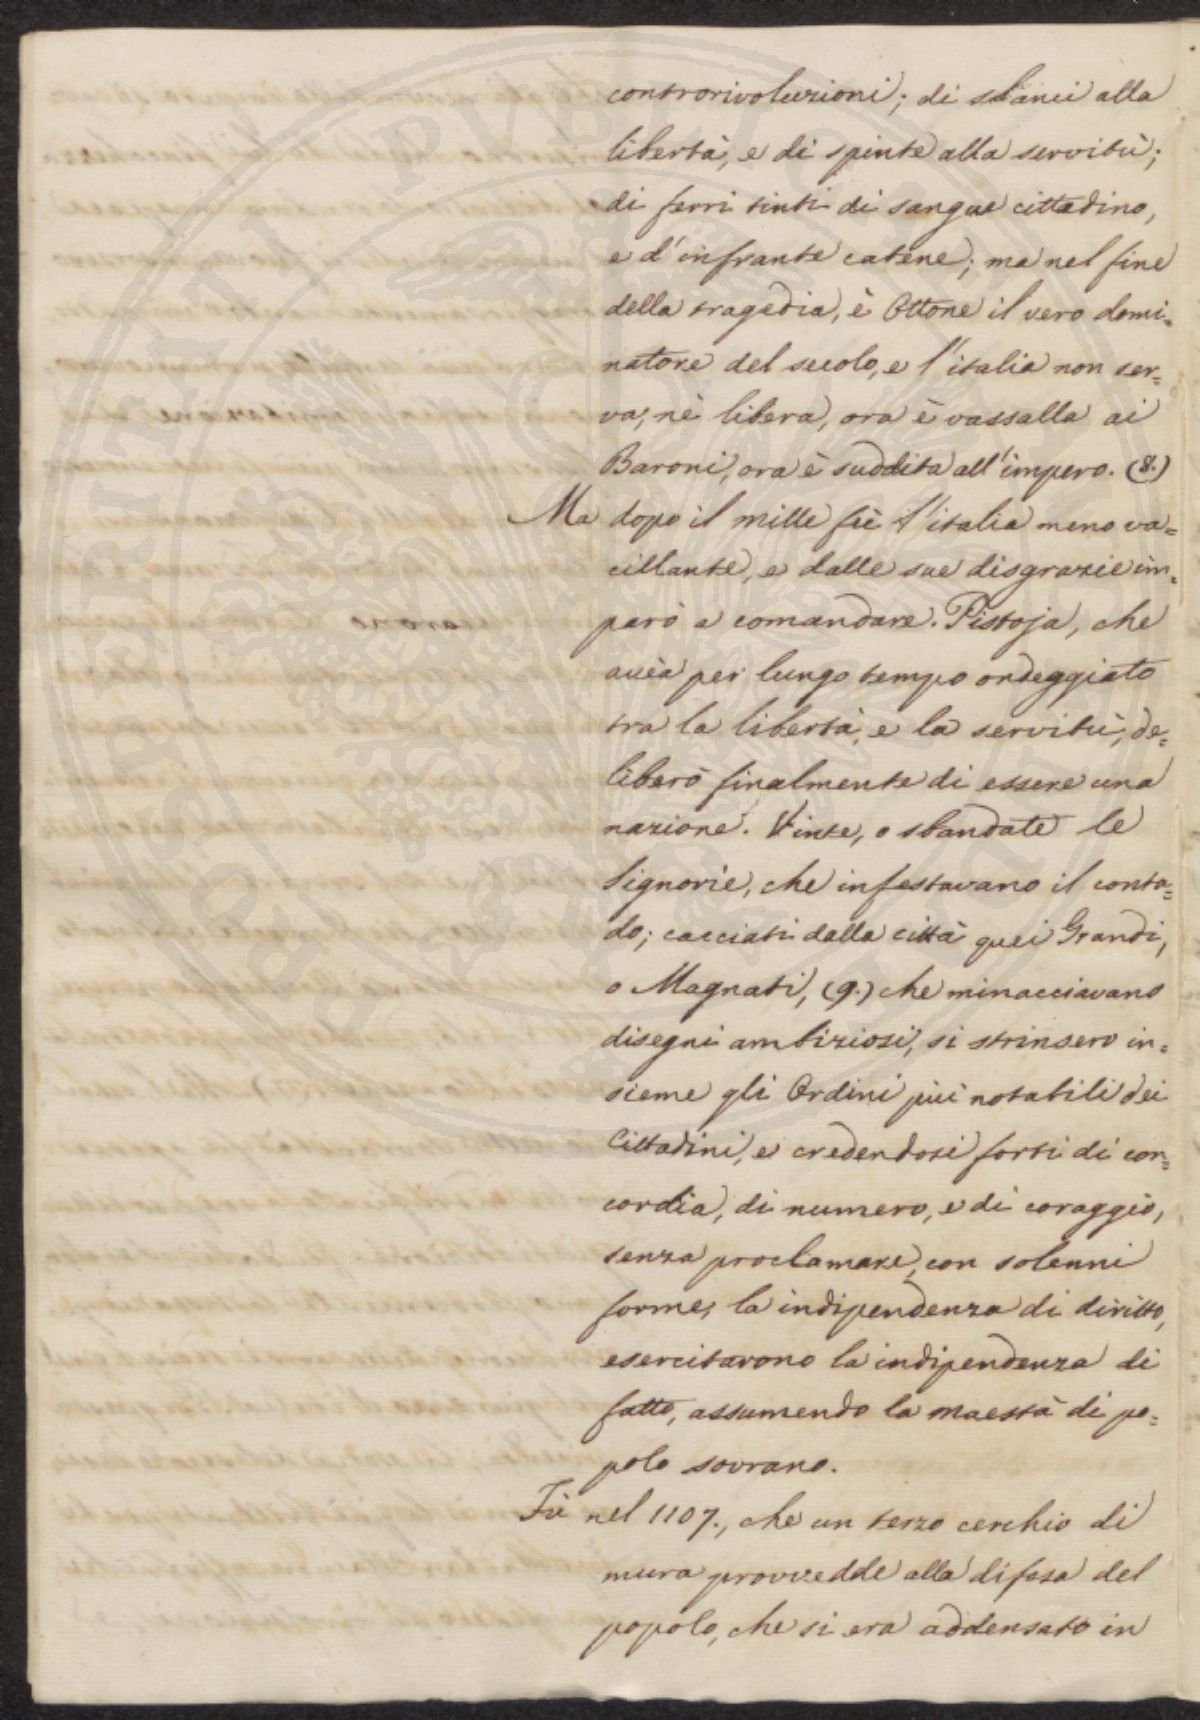 controrivoluzioni; di slanci alla
libertà, e di spinte alla servitù;
di ferri tinti di sangue cittadino,
e d'infrante catene; ma nel fine
della tragedia, è Ottone il vero domi=
natore del secolo, e l'italia non ser=
va, nè libera, ora è vassalla ai
Baroni, ora è suddita all'impero. (8.)
Ma dopo il mille fù l'italia meno va=
cillante, e dalle sue disgrazie im=
parò a comandare. Pistoja, che
avea per lungo tempo ondeggiato
tra la libertà, e la servitù, de=
liberò finalmente di essere una
nazione. Vinte, o sbandate le
Signorie, che infestavano il conta=
do; cacciati dalla città quei Grandi,
o Magnati, (9.) che minacciavano
disegni ambiziosi, si strinsero in=
sieme gli Ordini più notabili dei
Cittadini, e credendosi forti di con=
cordia, di numero, e di coraggio,
senza proclamare, con solenni
forme, la indipendenza di diritto,
esercitarono la indipendenza di
fatto, assumendo la maestà di po=
polo sovrano.
Fù nel 1107., che un terzo cerchio di
mura provvedde alla difesa del
popolo, che si era addensato in